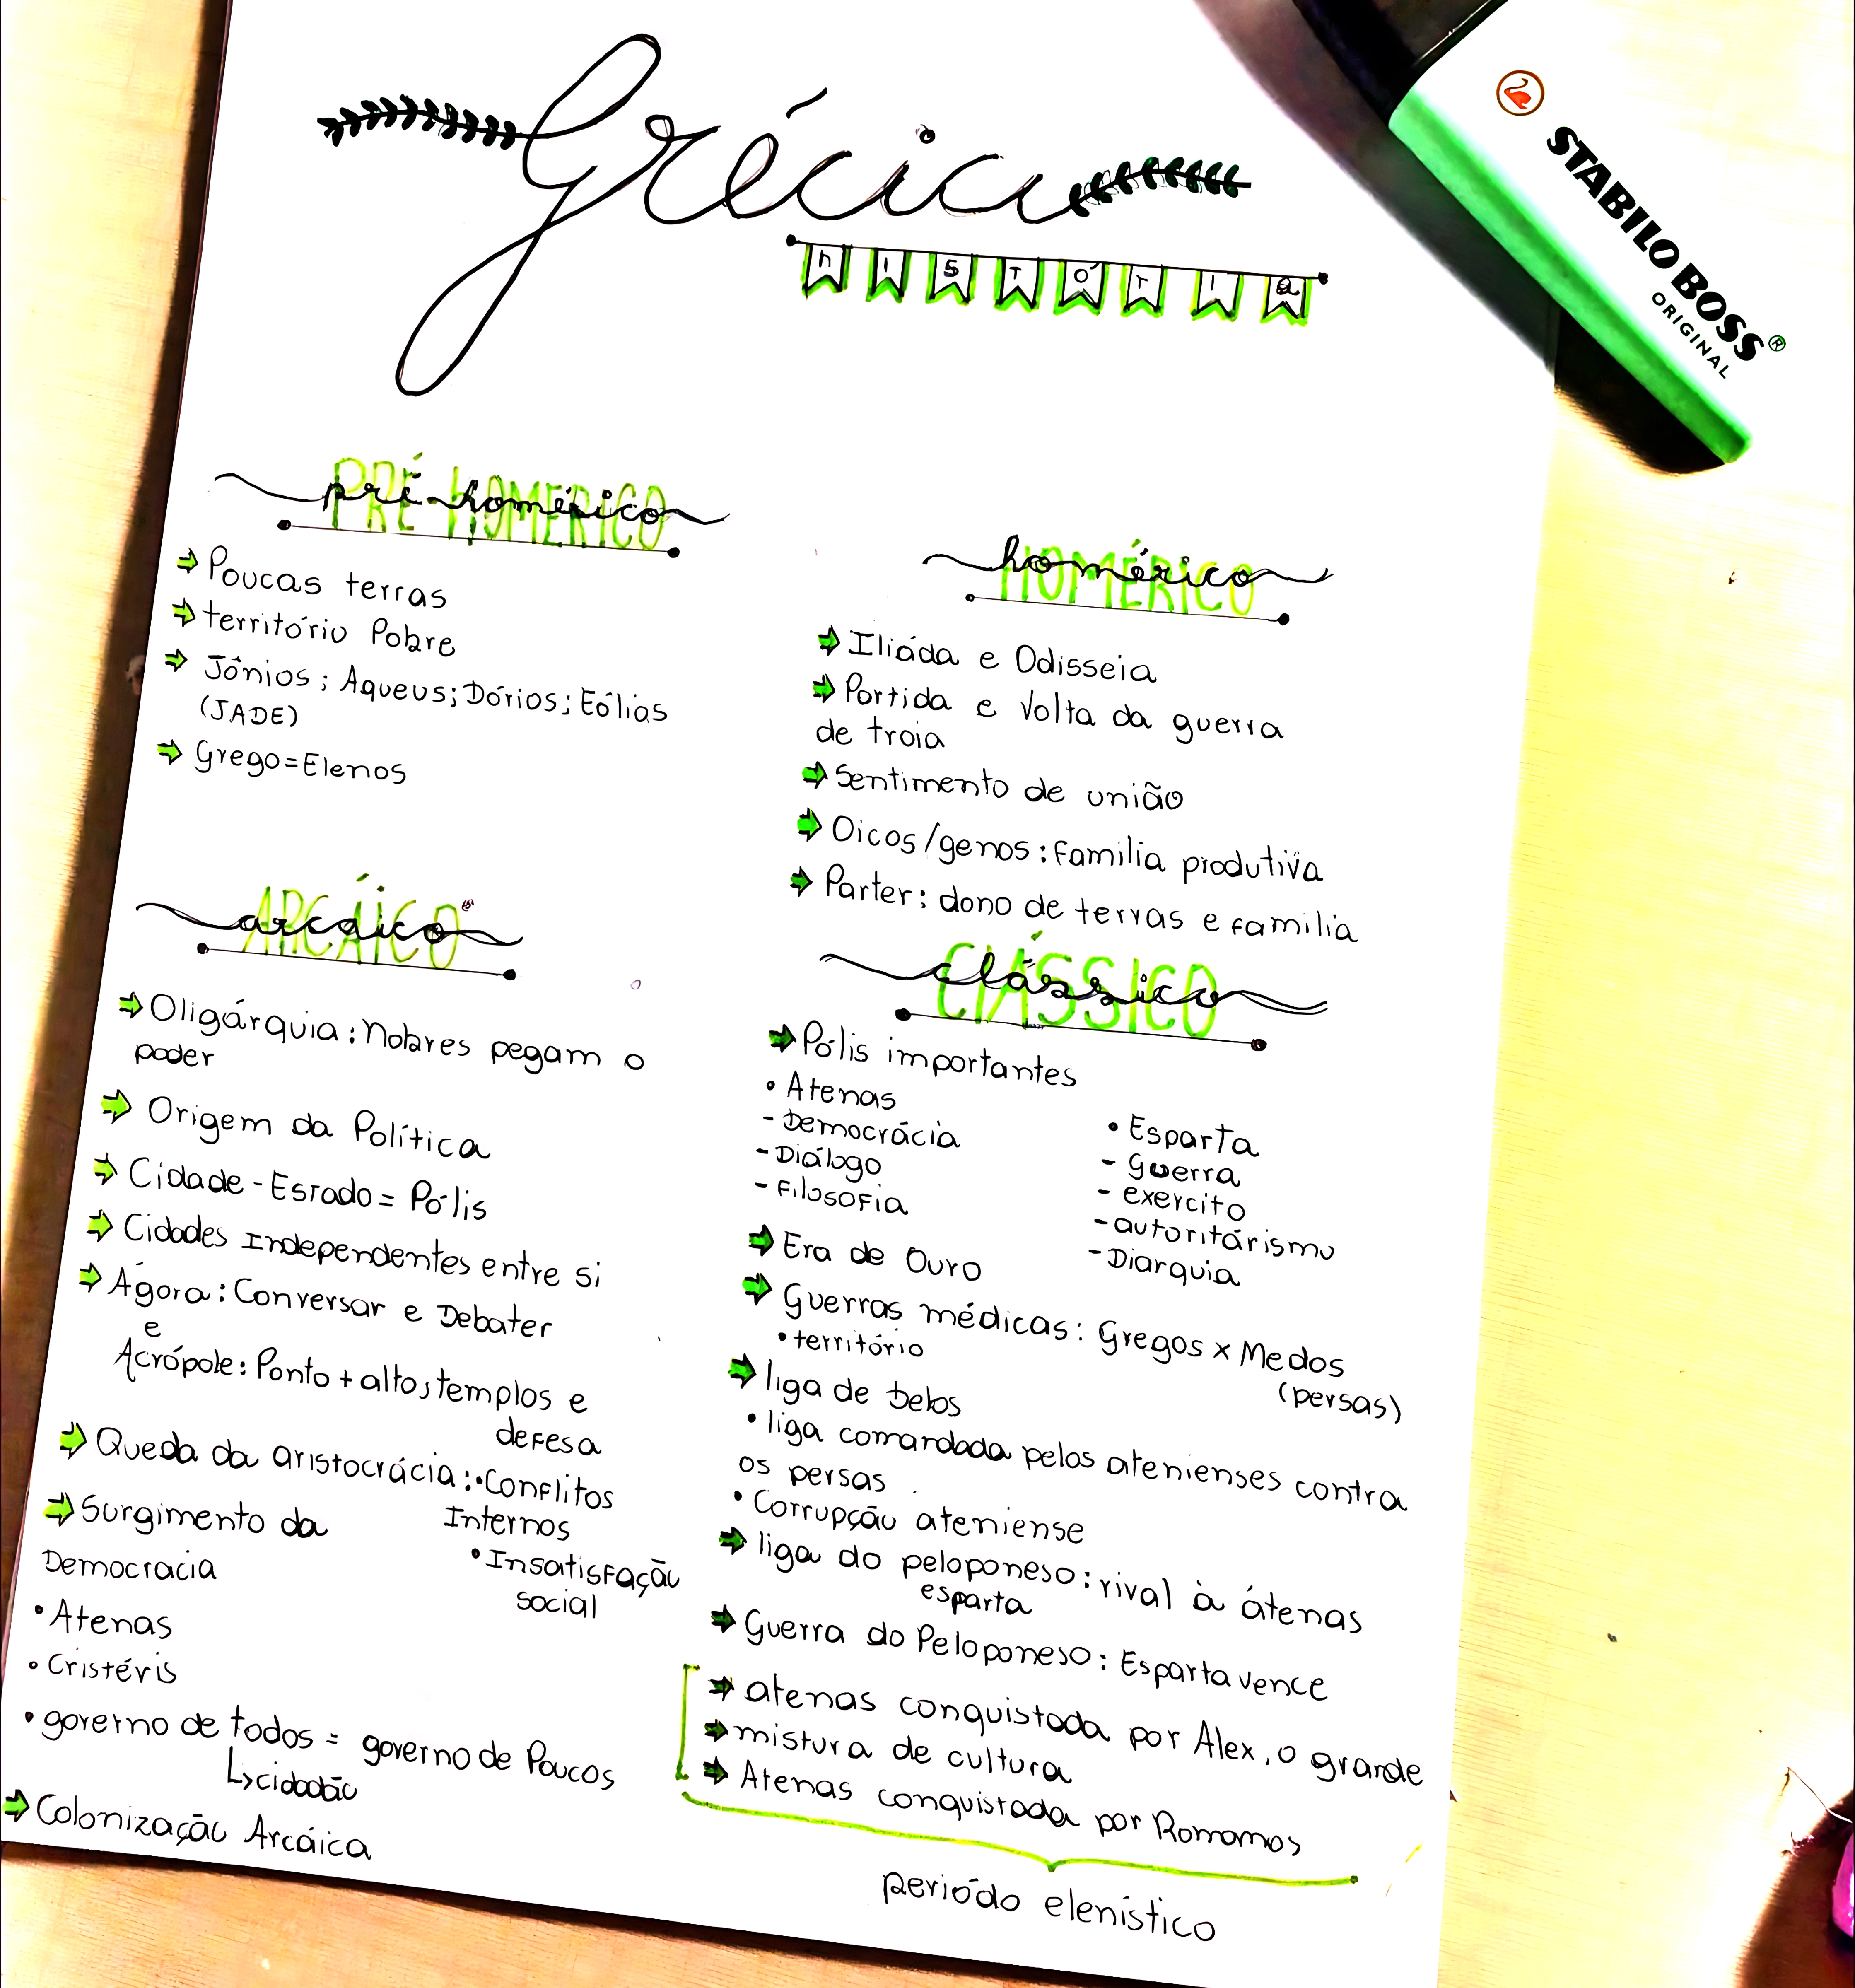 Grécia
história
STABILO BOSS®
ORIGINAL
PRÉ-HOMÉRICO
pré-homérico
⇒ Poucas terras
⇒ território Pobre
⇒ Jônios; Aqueus; Dórios; Eólios
(JADE)
⇒ Grego = Elenos
HOMÉRICO
homérico
⇒ Ilíada e Odisseia
⇒ Partida e Volta da guerra
de troia
⇒ Sentimento de união
⇒ Oicos/genos: Familia produtiva
⇒ Parter: dono de terras e familia
ARCÁICO
arcáico
⇒ Oligárquia: Nobres pegam o
poder
⇒ Origem da Política
⇒ Cidade - Estado = Pólis
⇒ Cidades Independentes entre si
⇒ Ágora: Conversar e Debater
e
Acrópole: Ponto + alto, templos e
defesa
⇒ Queda da aristocrácia: • Conflitos
Internos
• Insatisfação
social
⇒ Surgimento da
Democracia
• Atenas
• Cristéris
• governo de todos = governo de Poucos
↳ cidadão
⇒ Colonização Arcáica
CLÁSSICO
clássico
⇒ Pólis importantes
• Atenas
- Democrácia
- Diálogo
- Filosofia
• Esparta
- Guerra
- exercito
- autoritárismo
- Diarquia
⇒ Era de Ouro
⇒ Guerras médicas: Gregos x Medos
(persas)
• território
⇒ liga de Delos
• liga comandada pelos atenienses contra
os persas
• Corrupção ateniense
⇒ liga do peloponeso: rival à átenas
esparta
⇒ Guerra do Peloponeso: Esparta vence
⇒ atenas conquistada por Alex, o grande
⇒ mistura de cultura
⇒ Atenas conquistada por Romamos
periódo elenístico